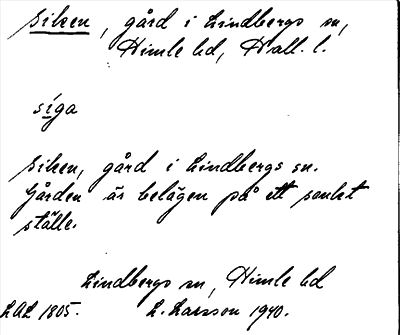 Siken, gård i Lindbergs sn,
Himle hd, Hall. l.
síga
Siken, gård i Lindbergs sn.
Gården är belägen på ett sankt
ställe.
Lindbergs sn, Himle hd
LAL 1805. L. Larsson 1940.